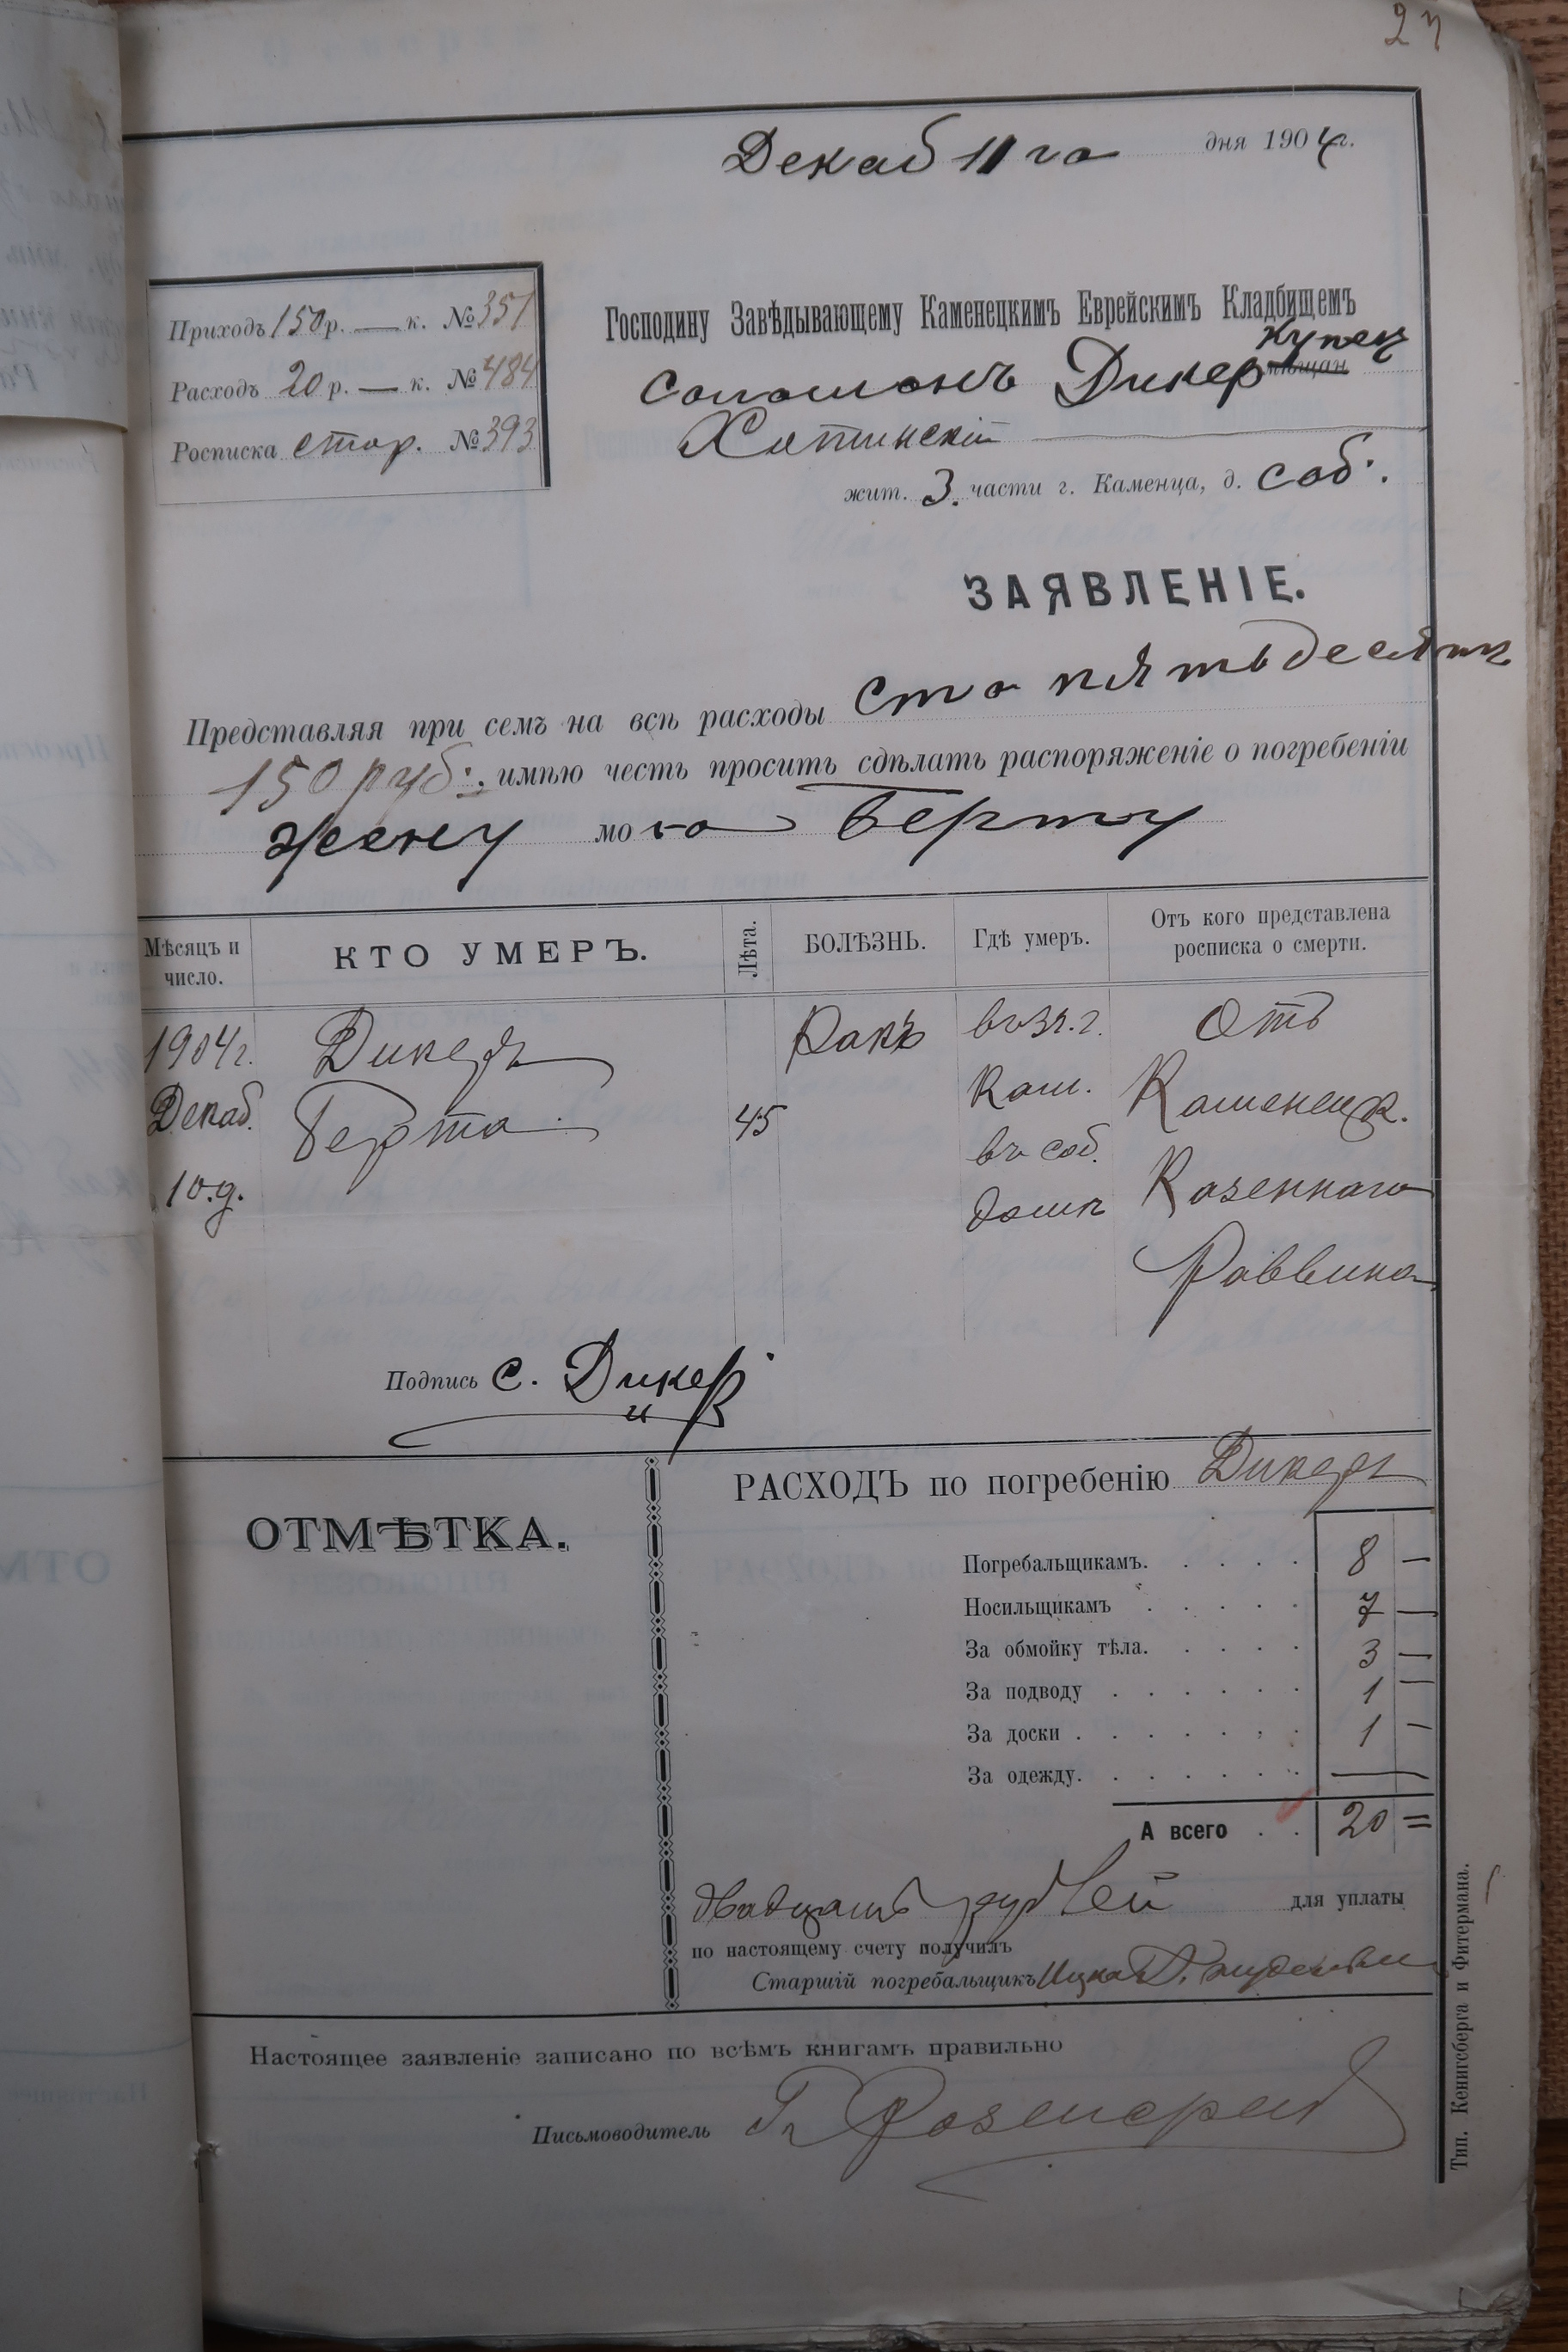 27
Декаб 11 го дня 1904 г.
Приходъ 150 р. — к. № 351
Расходъ 20 р. — к. № 484
Росписка стор. № 393
Господину Завѣдывающему Каменецкимъ Еврейскимъ Кладбищемъ
купец
Соломонъ Дикер мѣщан
Хотинскій
жит. 3. части г. Каменца, д. соб.
ЗАЯВЛЕНІЕ.
Представляя при семъ на всѣ расходы сто пятьдесятъ
150 руб. имѣю честь просить сдѣлать распоряженіе о погребеніи
жену мою Берту
Мѣсяцъ и число. КТО УМЕРЪ. Лѣта. БОЛѢЗНЬ. Гдѣ умеръ. Отъ кого представлена росписка о смерти.
1904 г. Дикеръ Ракъ Отъ
Декаб. Берта 45 Кам. Каменецк.
10.д. въ соб. Казеннаго
домѣ Раввина
Подпись С. Дикер
ОТМѢТКА.
РАСХОДЪ по погребенію Дикеръ
Погребальщикамъ. 8 —
Носильщикамъ 7 —
За обмойку тѣла. 3 —
За подводу 1 —
За доски 1 —
За одежду. —
А всего 20 =
двадцать рублей для уплаты
по настоящему счету получилъ
Старшій погребальщикъ Ицко
Настоящее заявленіе записано по всѣмъ книгамъ правильно
Письмоводитель
Тип. Кенигсберга и Фитермана.